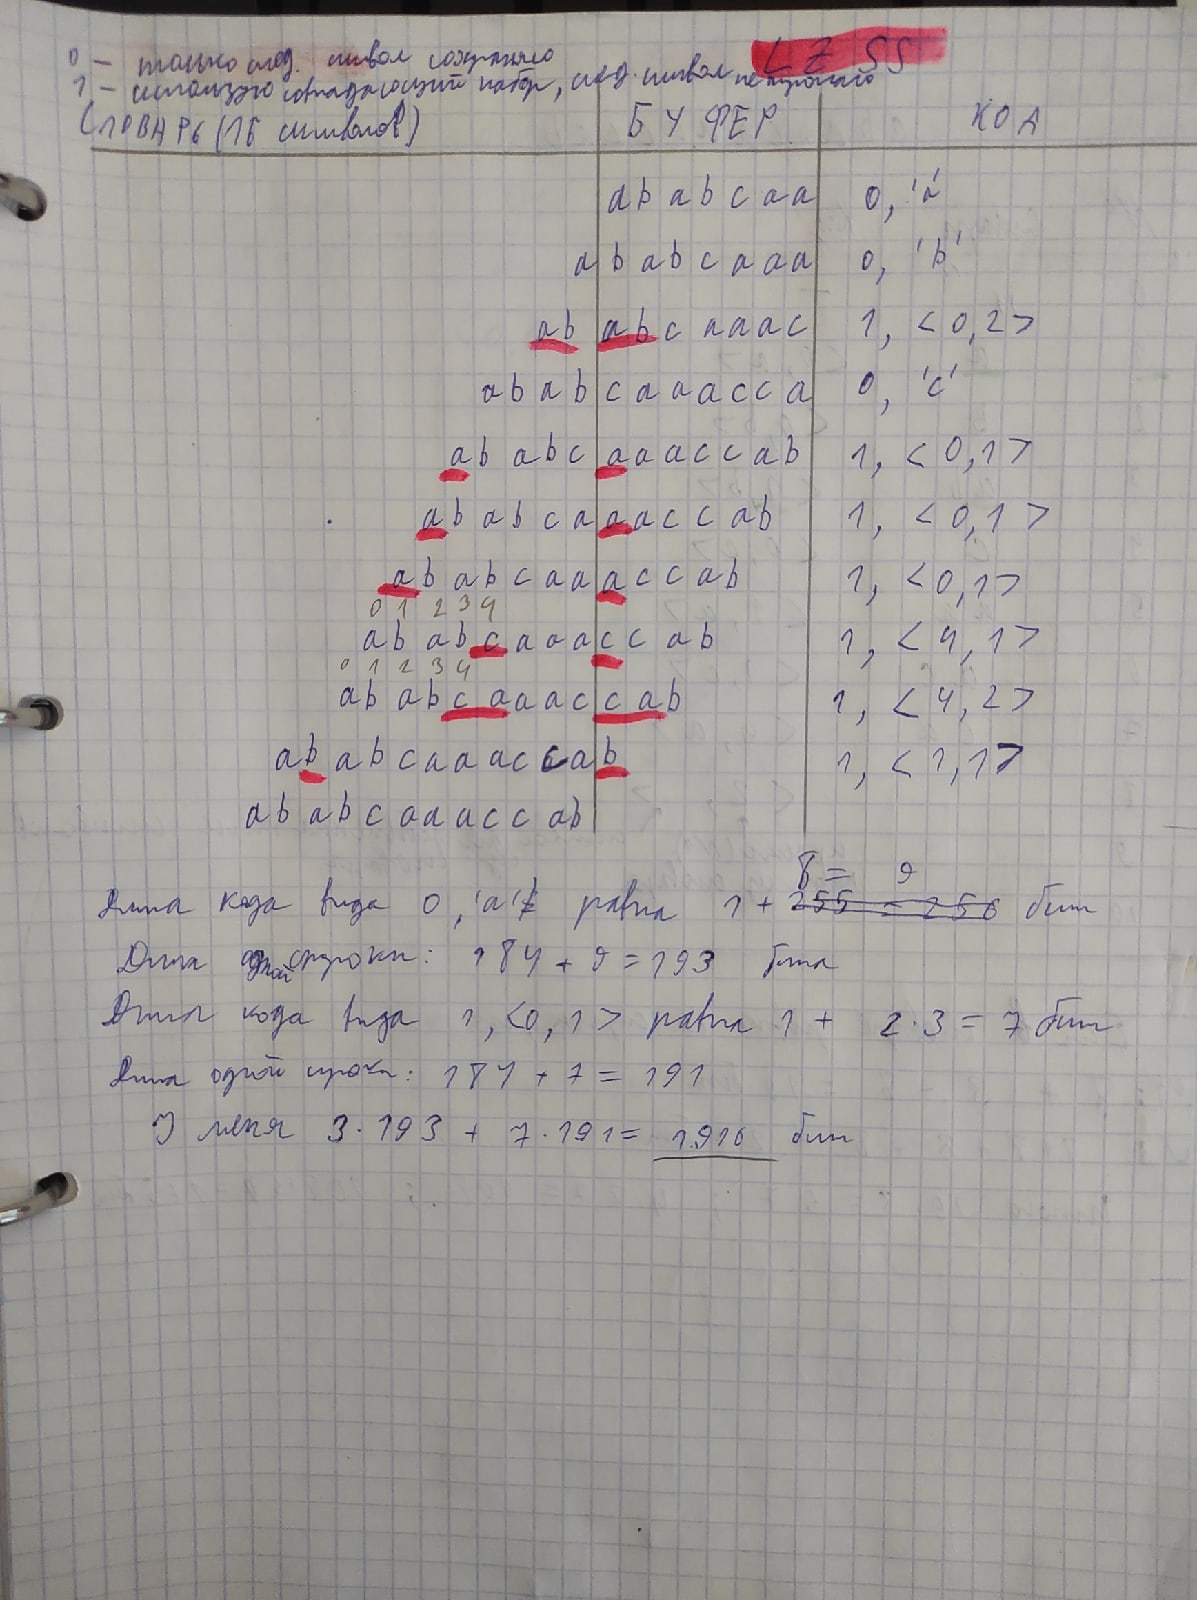 LZSS
0 — только след. символ сохраняю
1 — использую совпадающий набор, след. символ не трогаю
СЛОВАРЬ (16 символов) БУФЕР КОД
ababcaa 0, 'a'
a babcaaa 0, 'b'
ab abcaaac 1, <0,2>
abab caaacca 0, 'c'
ababc aaaccab 1, <0,1>
ababca aaccab 1, <0,1>
ababcaa accab 1, <0,1>
0 1 2 3 4
ababcaaa ccab 1, <4,1>
0 1 2 3 4
ababcaaac cab 1, <4,2>
ababcaaacca b 1, <1,1>
ababcaaaccab
8 = 9
Длина кода вида 0, 'a' равна 1 + 255 = 256 бит
Длина одной строки: 184 + 9 = 193 бита
Длина кода вида 1, <0,1> равна 1 + 2·3 = 7 бит
Длина одной строки: 184 + 7 = 191
У меня 3·193 + 7·191 = 1916 бит